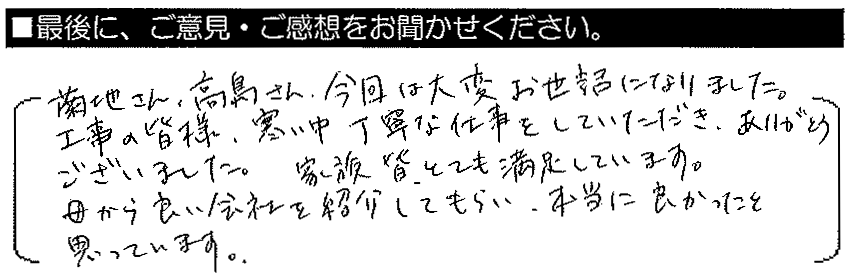 ■最後に、ご意見・ご感想をお聞かせください。
菊地さん、高島さん、今回は大変お世話になりました。
工事の皆様、寒い中丁寧な仕事をしていただき、ありがとう
ございました。 家族皆、とても満足しています。
母から良い会社を紹介してもらい、本当に良かったと
思っています。